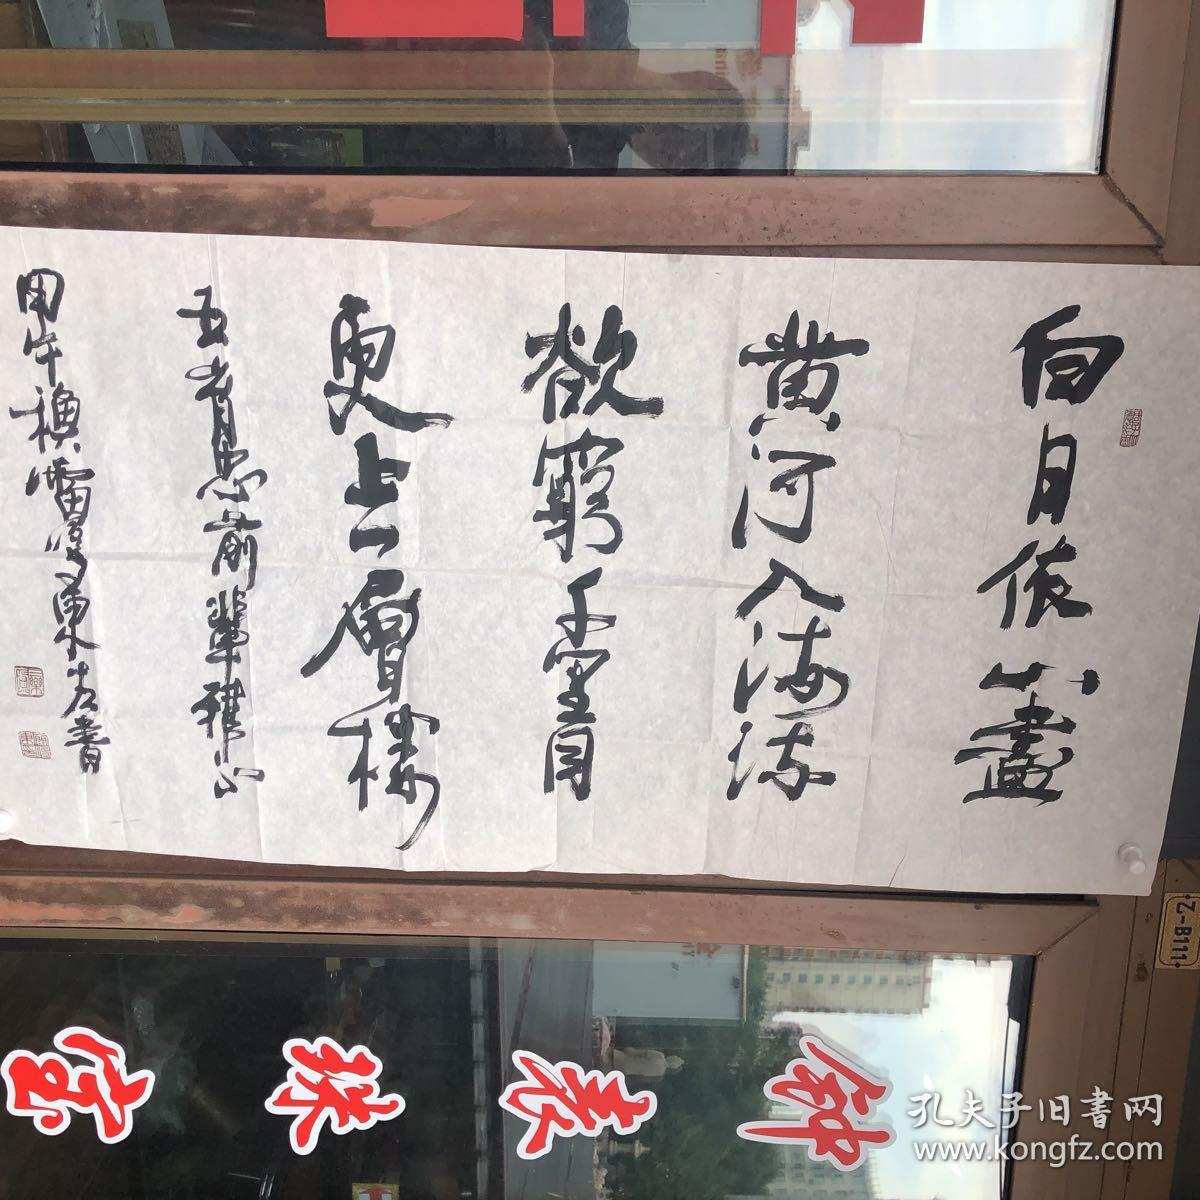 白日依山盡
黄河入海流
欲窮千里目
更上一層樓
前輩雅正
甲午
書
鈡表珠宝
Z-B111
孔夫子旧书网
www.kongfz.com